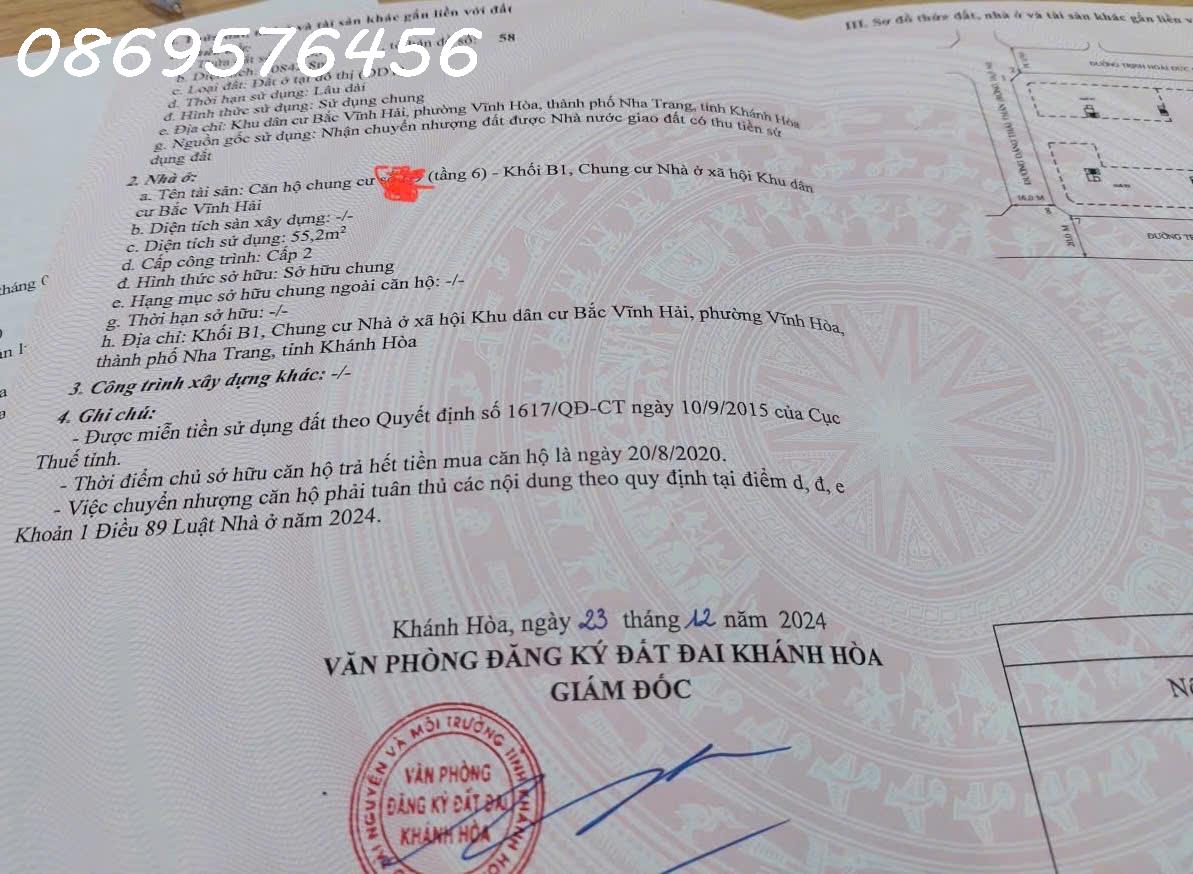 0869576456
và tài sản khác gắn liền với đất
58
c. Loại đất: Đất ở tại đô thị (ODT)
d. Thời hạn sử dụng: Lâu dài
đ. Hình thức sử dụng: Sử dụng chung
e. Địa chỉ: Khu dân cư Bắc Vĩnh Hải, phường Vĩnh Hòa, thành phố Nha Trang, tỉnh Khánh Hòa
g. Nguồn gốc sử dụng: Nhận chuyển nhượng đất được Nhà nước giao đất có thu tiền sử
dụng đất
2. Nhà ở:
a. Tên tài sản: Căn hộ chung cư (tầng 6) - Khối B1, Chung cư Nhà ở xã hội Khu dân
cư Bắc Vĩnh Hải
b. Diện tích sàn xây dựng: -/-
c. Diện tích sử dụng: 55,2m²
d. Cấp công trình: Cấp 2
đ. Hình thức sở hữu: Sở hữu chung
e. Hạng mục sở hữu chung ngoài căn hộ: -/-
g. Thời hạn sở hữu: -/-
h. Địa chỉ: Khối B1, Chung cư Nhà ở xã hội Khu dân cư Bắc Vĩnh Hải, phường Vĩnh Hòa,
thành phố Nha Trang, tỉnh Khánh Hòa
3. Công trình xây dựng khác: -/-
4. Ghi chú:
- Được miễn tiền sử dụng đất theo Quyết định số 1617/QĐ-CT ngày 10/9/2015 của Cục
Thuế tỉnh.
- Thời điểm chủ sở hữu căn hộ trả hết tiền mua căn hộ là ngày 20/8/2020.
- Việc chuyển nhượng căn hộ phải tuân thủ các nội dung theo quy định tại điểm d, đ, e
Khoản 1 Điều 89 Luật Nhà ở năm 2024.
Khánh Hòa, ngày 23 tháng 12 năm 2024
VĂN PHÒNG ĐĂNG KÝ ĐẤT ĐAI KHÁNH HÒA
GIÁM ĐỐC
NGUYÊN VÀ MÔI TRƯỜNG TỈNH KHÁNH HÒA
VĂN PHÒNG
ĐĂNG KÝ ĐẤT ĐAI
KHÁNH HÒA
III. Sơ đồ thửa đất, nhà ở và tài sản khác gắn liền
ĐƯỜNG TRỊNH HOÀI ĐỨC
16,0 M
ĐƯỜNG
tháng